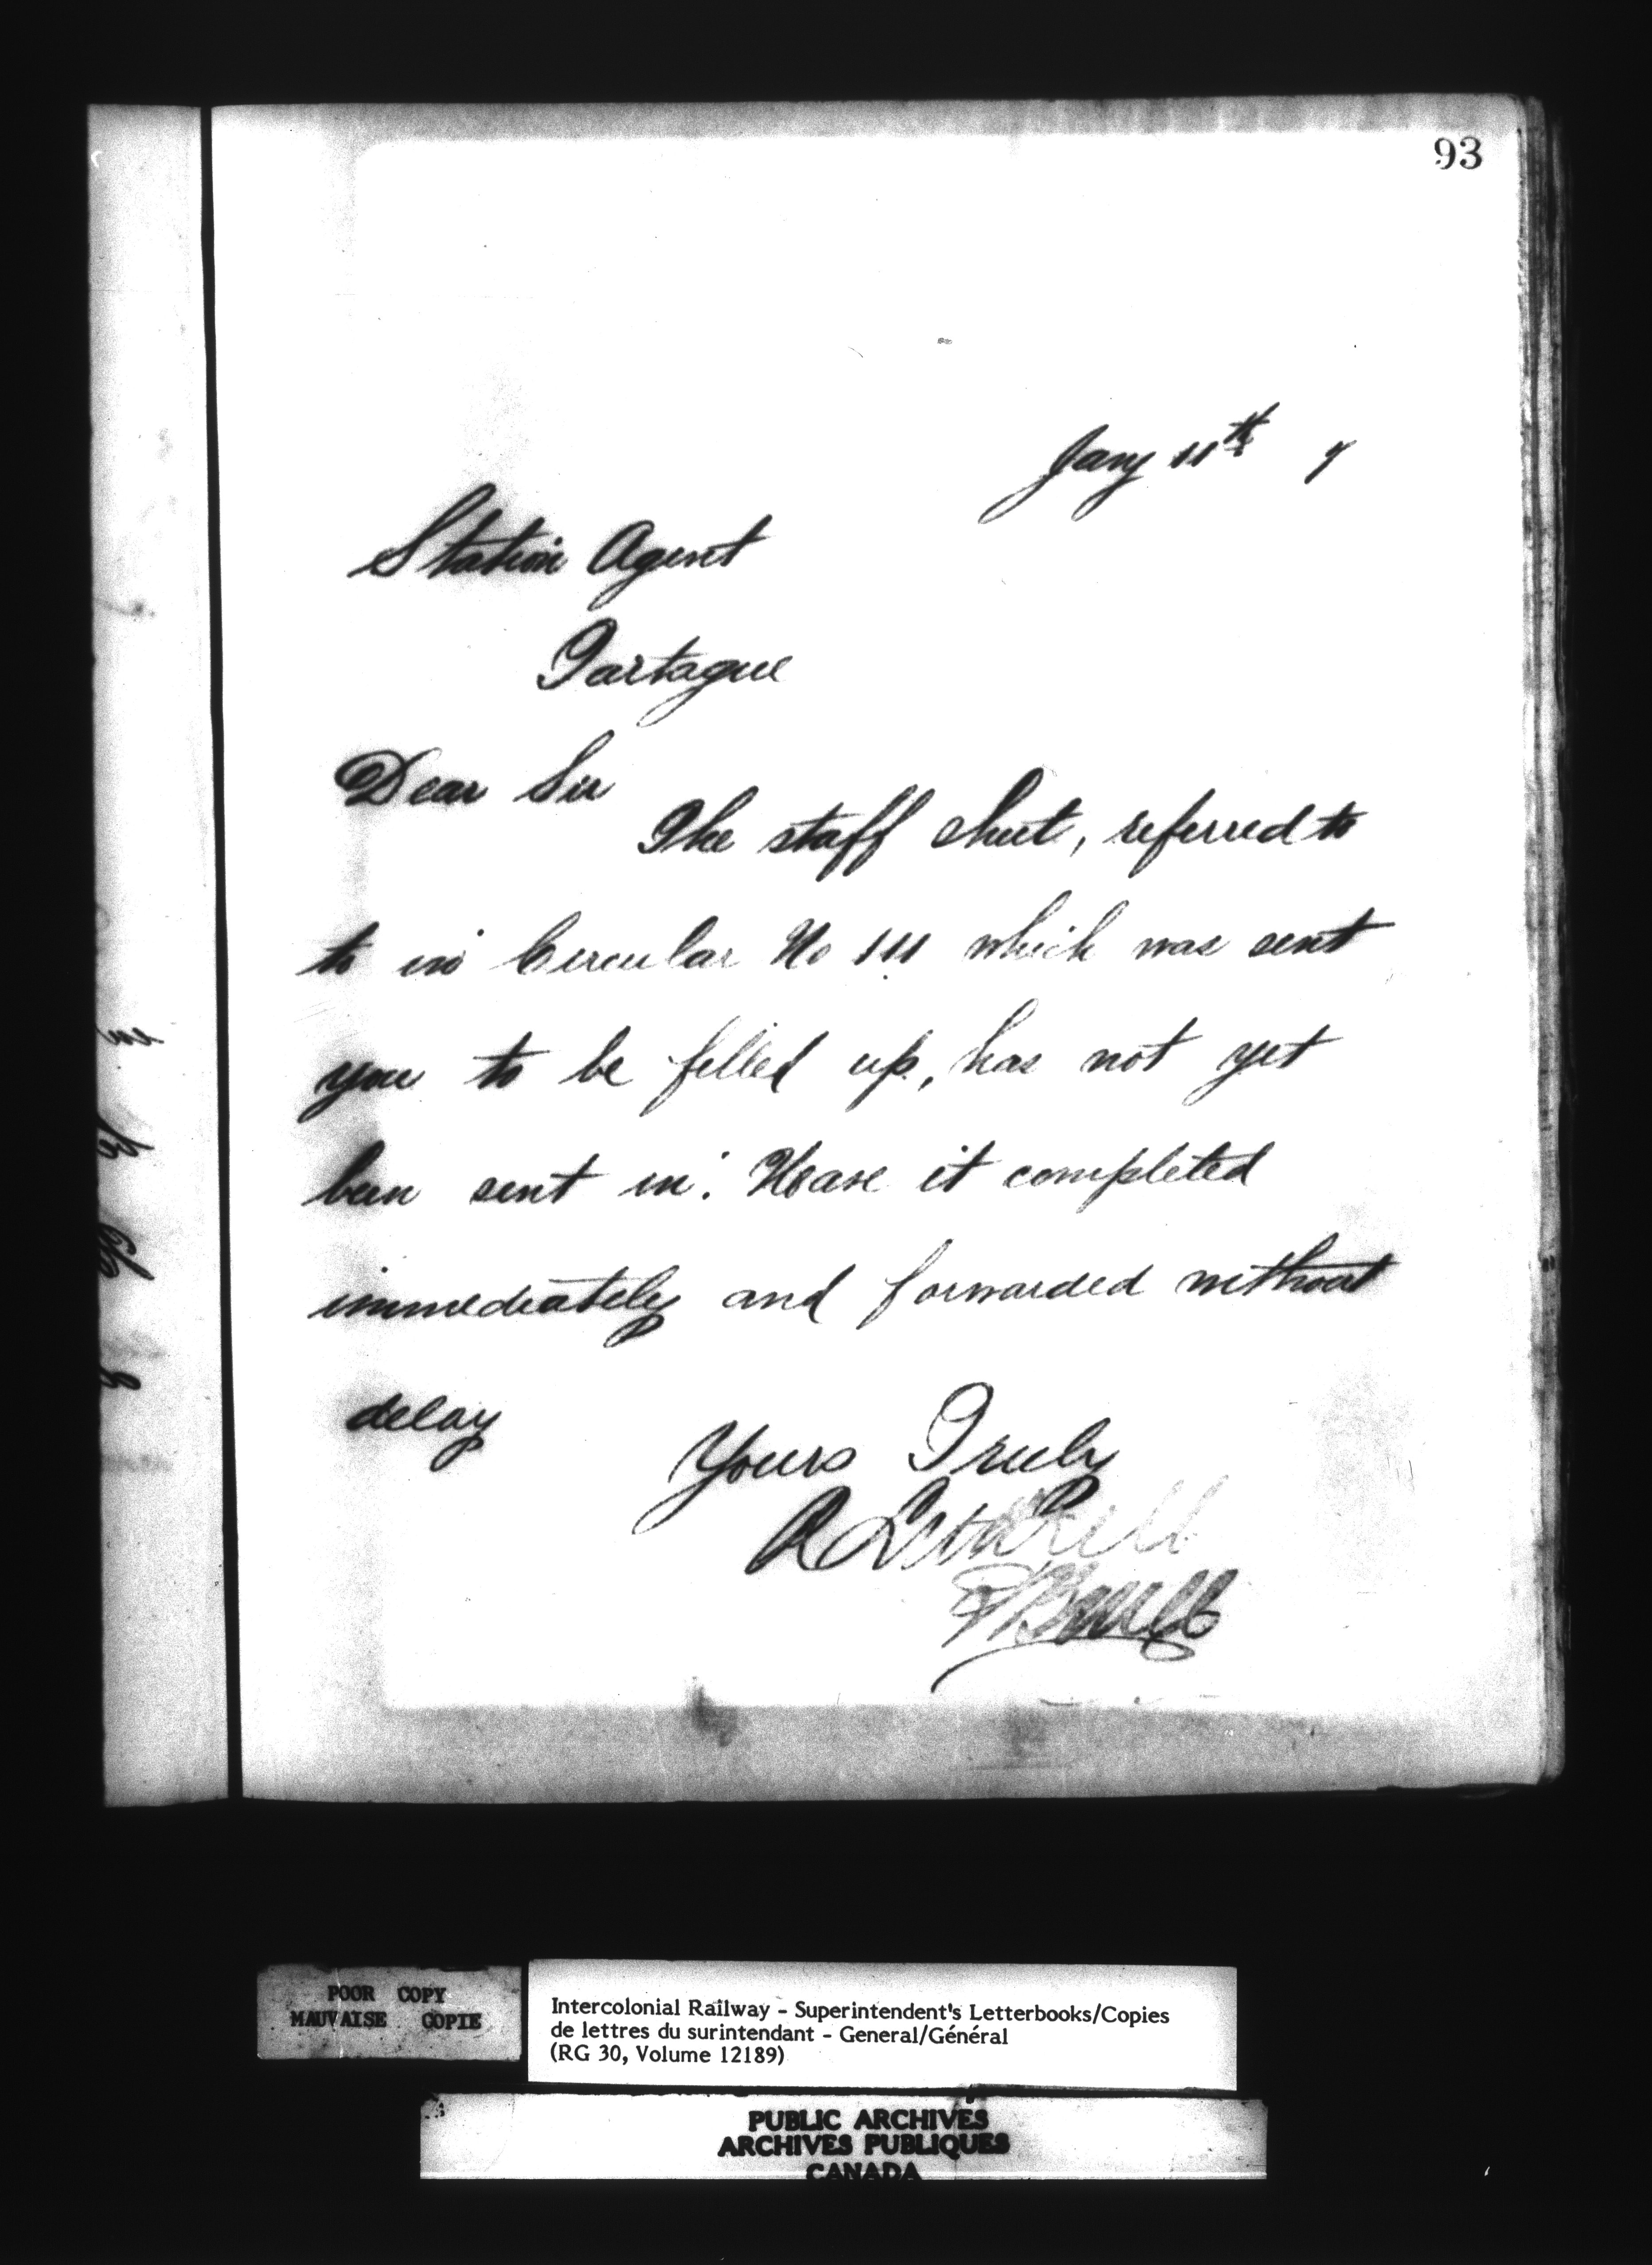 93
Jany 11th 7
Station Agent
Tartague
Dear Sir
The staff sheet, referred to
to in Circular No 111 which was sent
you to be filled up, has not yet
been sent in. Have it completed
immediately and forwarded without
delay
Yours Truly
POOR COPY
MAUVAISE COPIE
Intercolonial Railway - Superintendent's Letterbooks/Copies
de lettres du surintendant - General/Général
(RG 30, Volume 12189)
PUBLIC ARCHIVES
ARCHIVES PUBLIQUES
CANADA